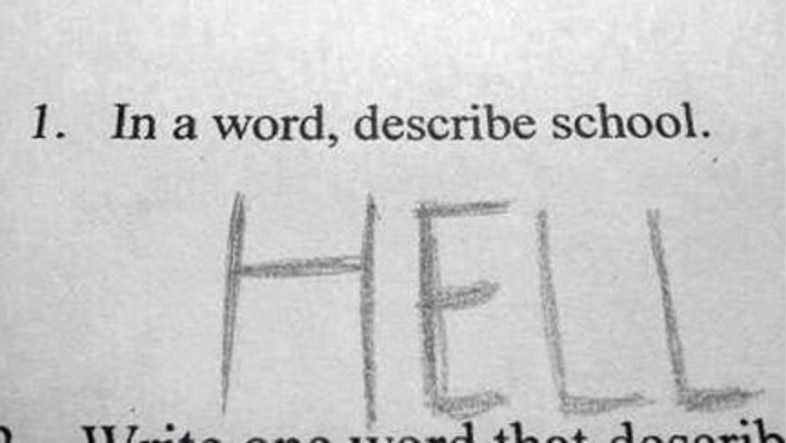 1. In a word, describe school.
HELL
Write one word that describ